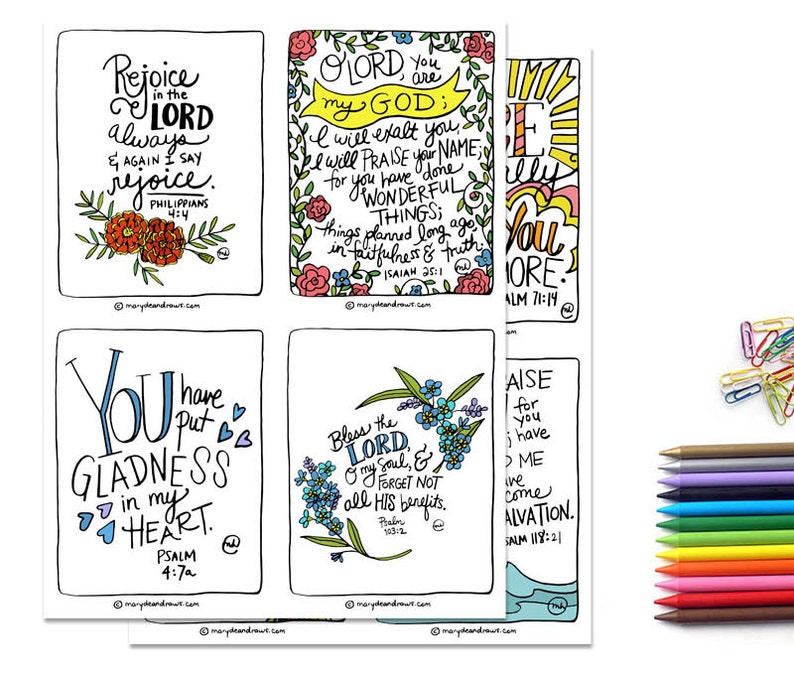 Rejoice
in the
LORD
always
& AGAIN I SAY
rejoice.
PHILIPPIANS
4:4
mh
© marydeandraws.com
O LORD, you
are
my GOD;
I will exalt you,
I will PRAISE your NAME;
for you have done
WONDERFUL
THINGS;
things planned long ago
in faithfulness & truth.
ISAIAH 25:1
mh
© marydeandraws.com
YOU have
put
GLADNESS
in my
HEART.
PSALM
4:7a
mh
© marydeandraws.com
Bless the
LORD,
O my soul, &
FORGET NOT
all HIS benefits.
Psalm
103:2
mh
© marydeandraws.com
YOU
MORE.
PSALM 71:14
mh
.com
RAISE
for
you
have
ME
SALVATION.
PSALM 118:21
mh
© marydeandraws.com
© marydeandraws.com